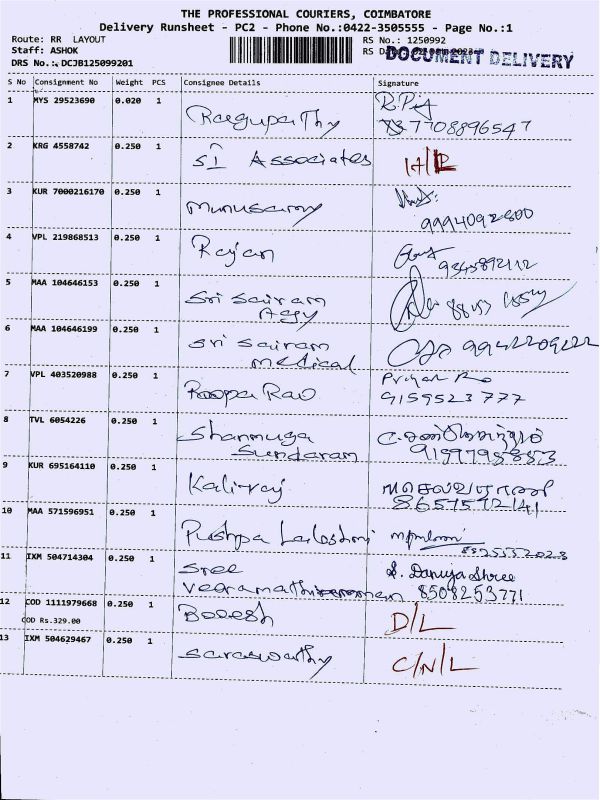 THE PROFESSIONAL COURIERS, COIMBATORE
Delivery Runsheet - PC2 - Phone No.:0422-3505555 - Page No.:1
Route: RR LAYOUT
RS No.: 1250992
Staff: ASHOK
RS
DOCUMENT DELIVERY
DRS No.: DCJB125099201
S No Consignment No Weight PCS Consignee Details Signature
1 MYS 29523690 0.020 1 Raguparthy
7708896547
2 KRG 4558742 0.250 1 Sri Associates
3 KUR 7000216170 0.250 1 Munusamy
9994092800
4 VPL 219868513 0.250 1 Rajan
9345892112
5 MAA 104646153 0.250 1 Sri Sairam
Agy
6 MAA 104646199 0.250 1 Sri Sairam
medical
7 VPL 403520988 0.250 1 Roopa Rao
9159523777
8 TVL 6054226 0.250 1 Shanmuga
Sundaram
9 KUR 695164110 0.250 1 Kaliraj
8657572141
10 MAA 571596951 0.250 1 Pushpa
11 IXM 504714304 0.250 1 Sree S. Danuja Shree
8508253771
12 COD 1111979668 0.250 1 D/L
COD Rs.329.00
13 IXM 504629467 0.250 1 Saraswathy C/N/L